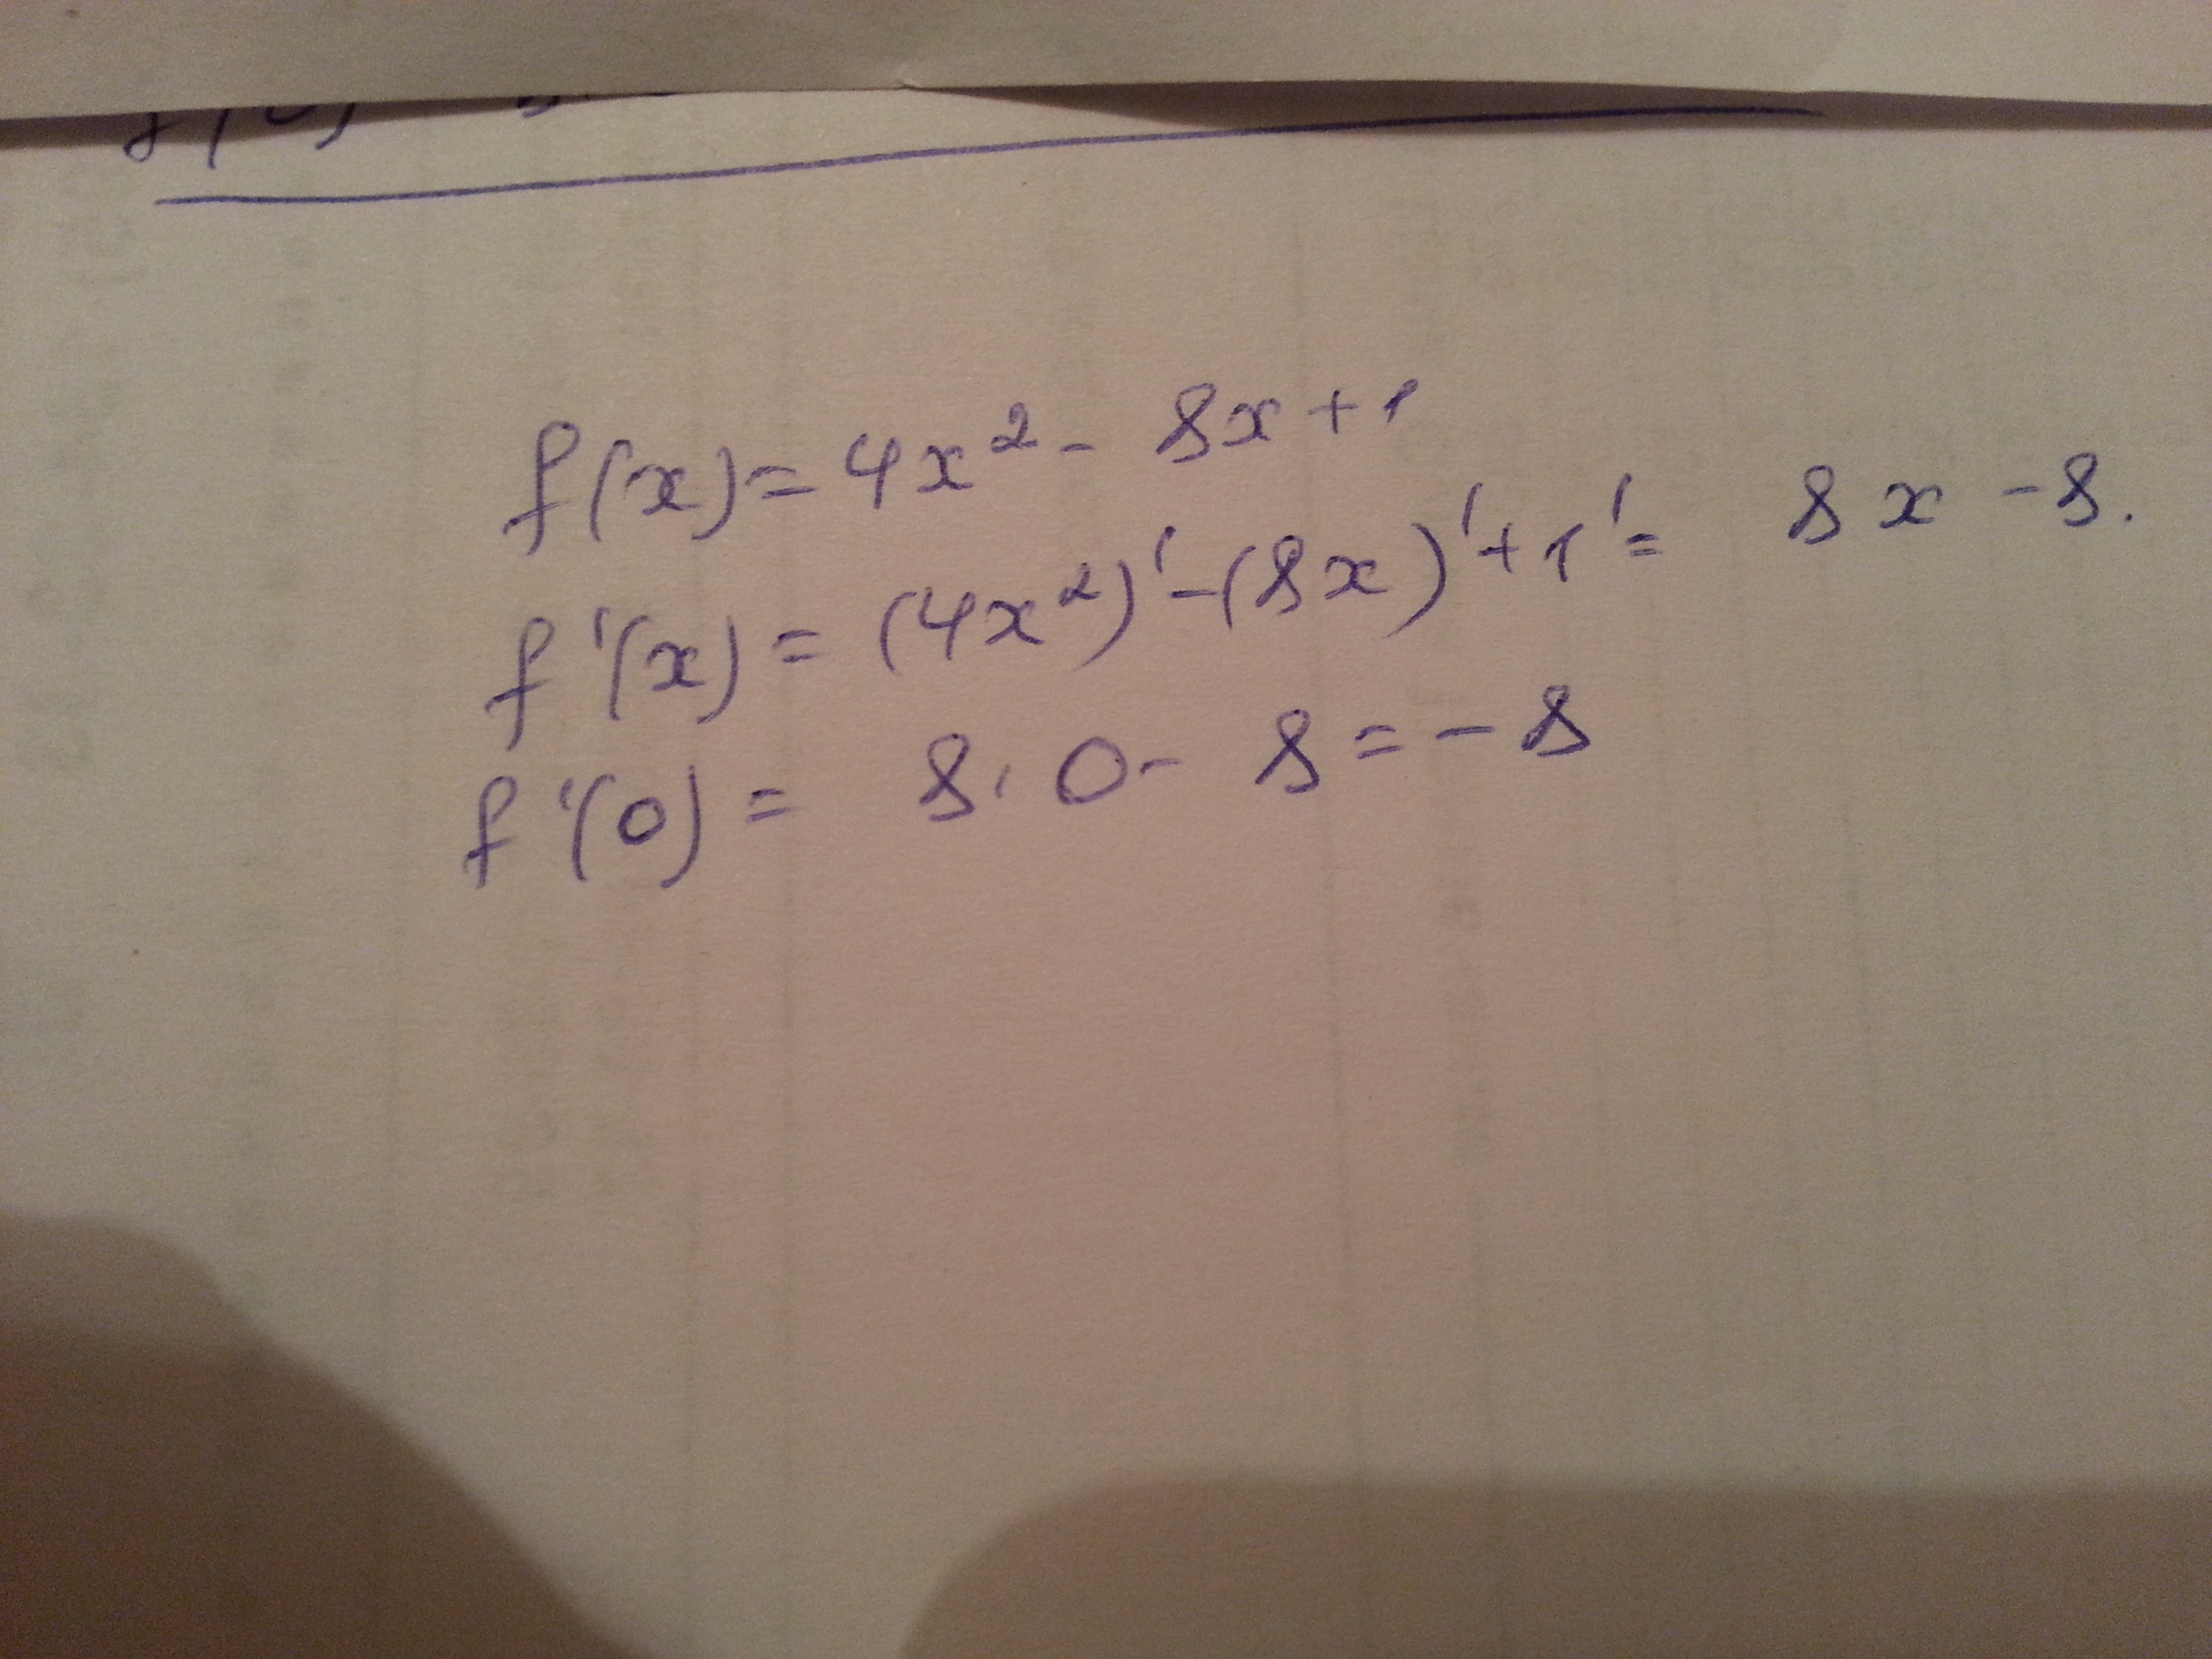 f(x)=4x²-8x+1
f'(x)=(4x²)'-(8x)'+1'= 8x-8.
f'(0)= 8·0-8=-8